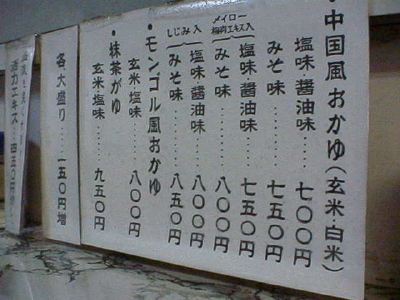 ・中国風おかゆ（玄米・白米）
塩味・醤油味……七〇〇円
みそ味……七五〇円
メイロー梅肉エキス入
塩味・醤油味……七五〇円
みそ味……八〇〇円
しじみ入
塩味・醤油味……八〇〇円
みそ味……八五〇円
・モンゴル風おかゆ
玄米塩味……八〇〇円
・抹茶がゆ
玄米塩味……九五〇円
各大盛り……一五〇円増